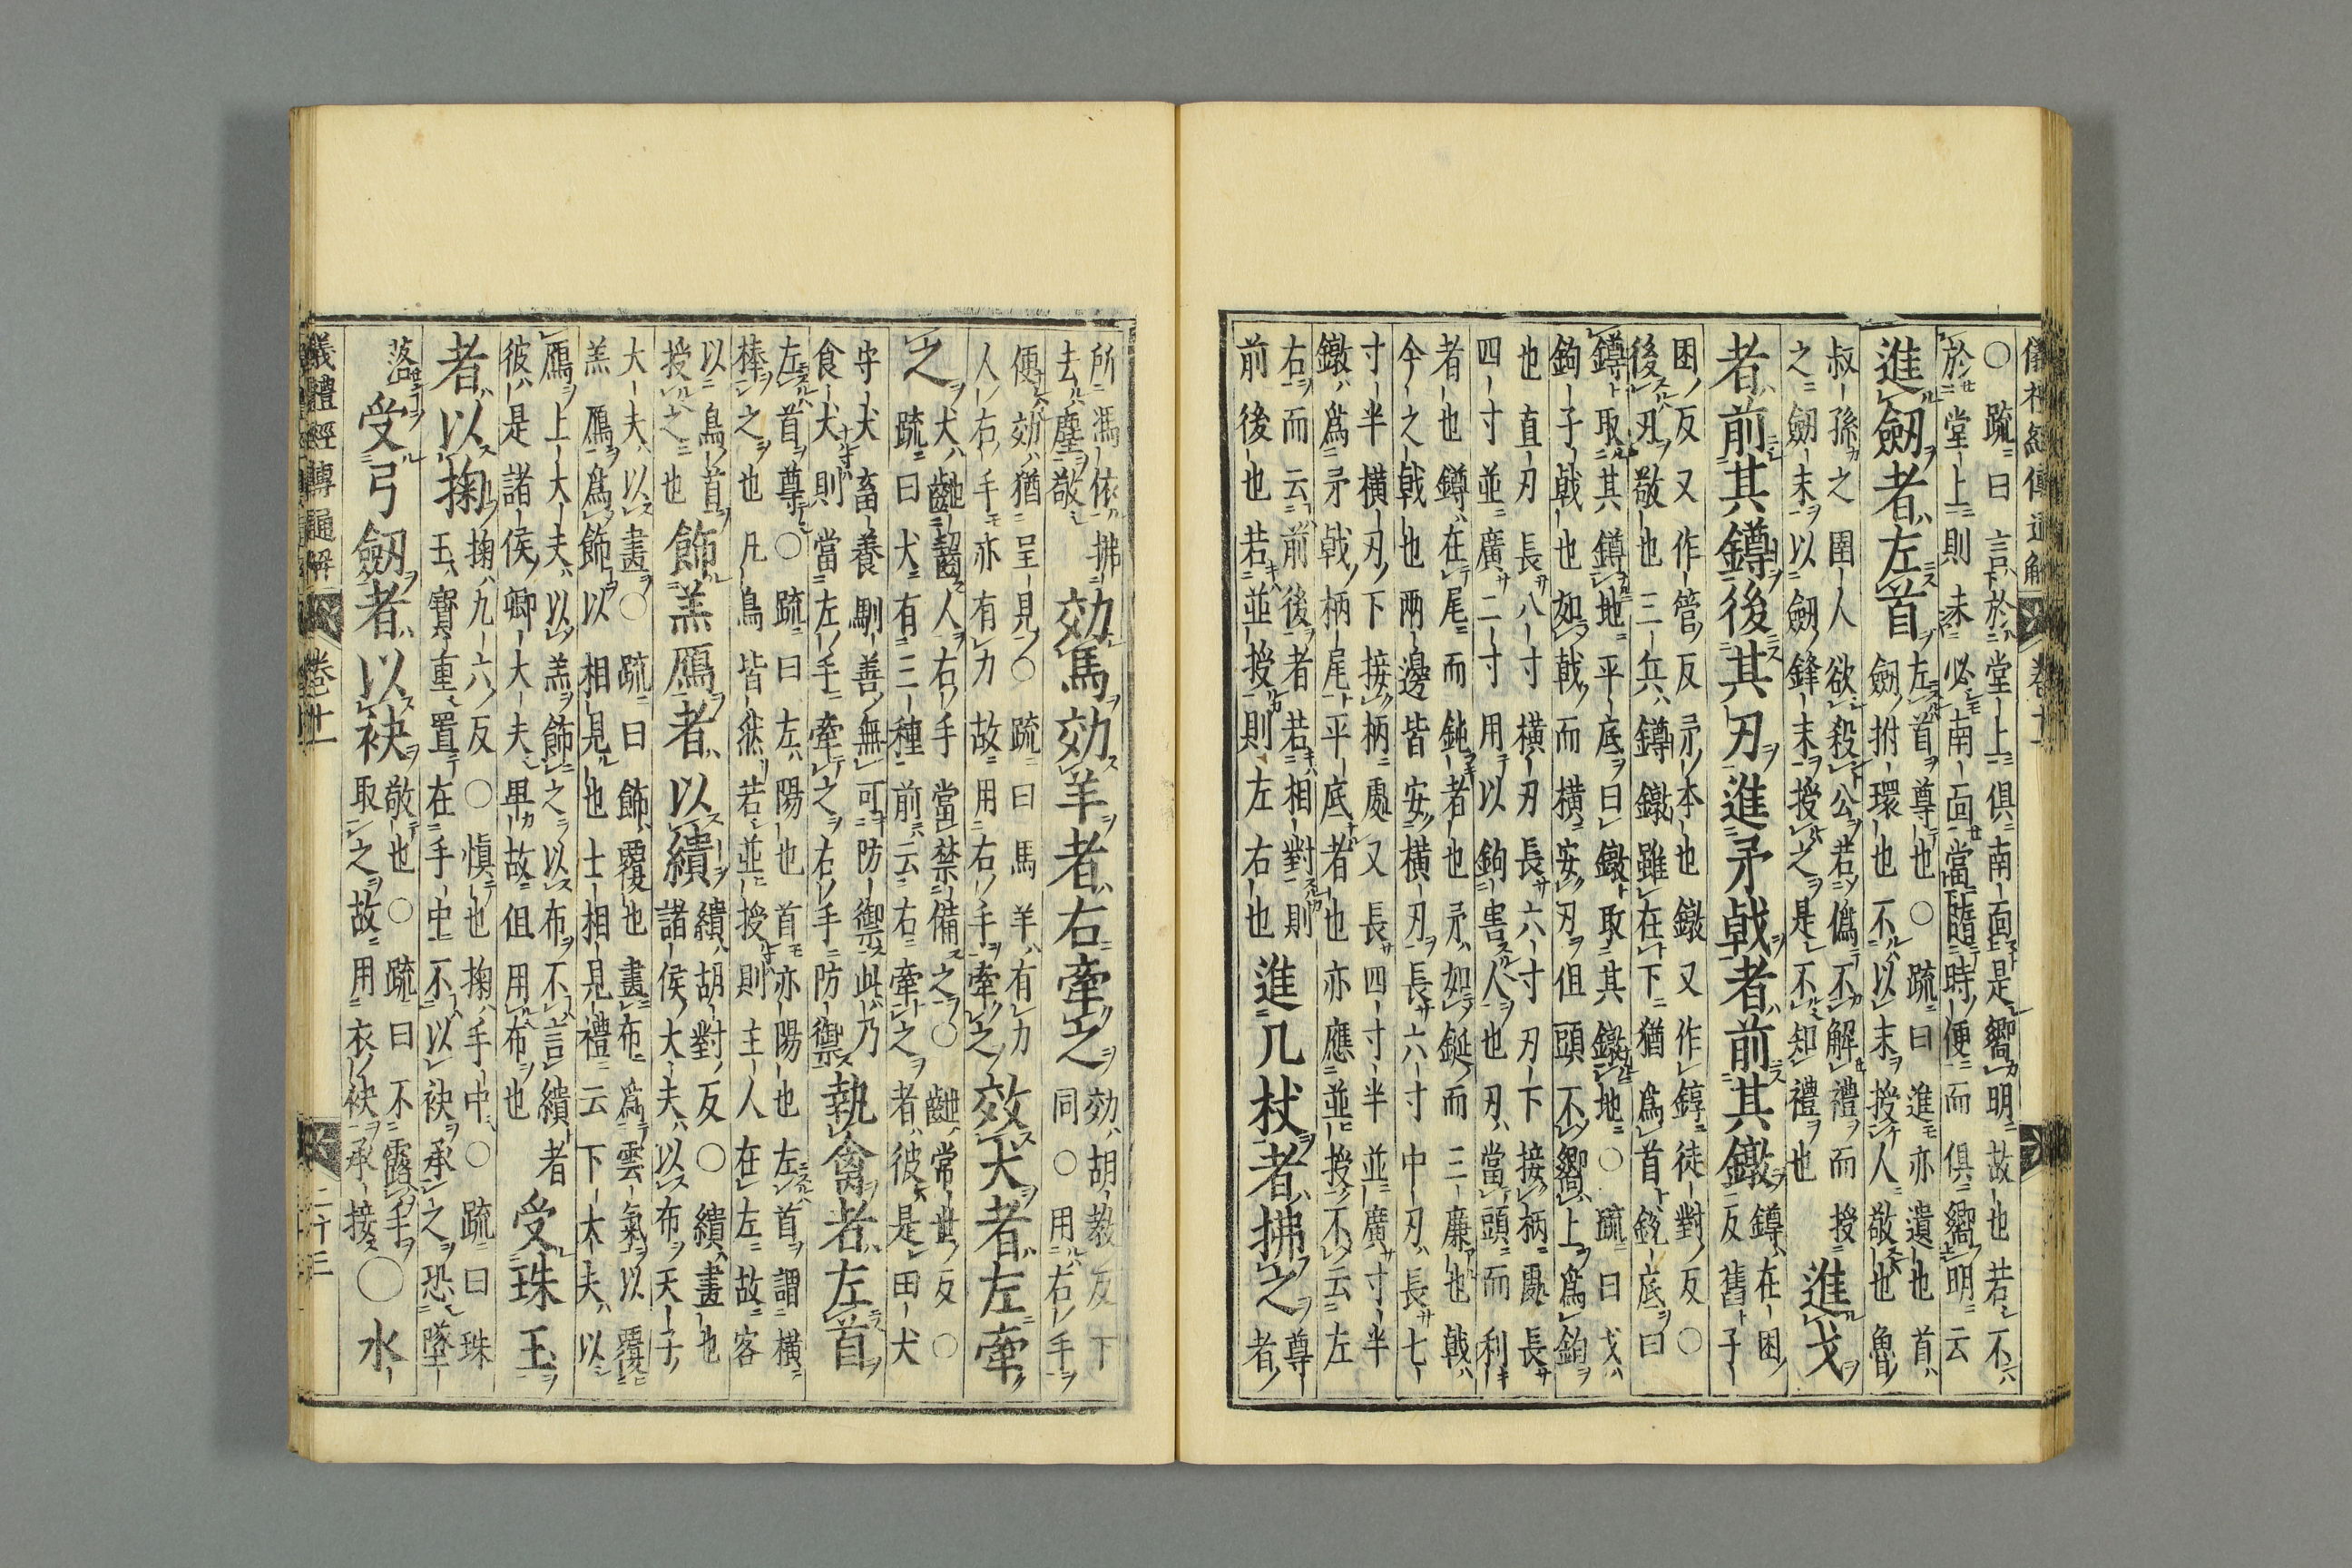 儀禮經傳通解 卷十一
〇疏曰言於堂上俱南面是嚮明故也若不
於堂上則未必南面當隨時便而俱嚮明云
進劒者左首
左首尊也〇疏曰進亦遺也首
劒拊環也不以末授人敬也魯
叔孫之圉人欲殺公若僞不解禮而授
之劒末以劒鋒末授之是不知禮也
進戈
者前其鐏後其刃進矛戟者前其鐓
鐏在困
反舊子
困反又作管反矛本也鐓又作錞徒對反〇
後刃敬也三兵鐏鐓雖在下猶爲首銳底曰
鐏取其鐏地平底曰鐓取其鐓地〇疏曰戈
鉤子戟也如戟而横安刃但頭不嚮上爲鉤
也直刃長八寸横刃長六寸刃下接柄處長
四寸並廣二寸用以鉤害人也刃當頭而利
者也鐏在尾而鈍者也矛如鋋而三廉也戟
今之戟也兩邊皆安横刃長六寸中刃長七
寸半横刃下接柄處又長四寸半並廣寸半
鐓爲矛戟柄尾平底者也亦應並授不云左
右而云前後者若相對則
前後也若並授則左右也
進几杖者拂之
尊
者
所馮依拂
去塵敬
効馬効羊者右牽之
効胡教反下
同〇用右手
便効猶呈見〇疏曰馬羊有力
人右手亦有力故用右手牽之
效犬者左牽
之
犬齜齧人右手當禁備之〇齜常世反〇
疏曰犬有三種前云右牽之者彼是田犬
守犬畜養馴善無可防禦此乃
食犬則當左手牽之右手防禦
執禽者左首
左首尊〇疏曰左陽也首亦陽也左首謂横
捧之也凡鳥皆然若並授則主人在左故客
以鳥首
授之也
飾羔鴈者以繢
繢胡對反〇繢畫也
諸侯大夫以布天子
大夫以畫〇疏曰飾覆也畫布爲雲氣以覆
羔鴈爲飾以相見也士相見禮云下大夫以
鴈上大夫以羔飾之以布不言繢者
彼是諸侯卿大夫卑故但用布也
受珠玉
者以掬
掬九六反〇慎也掬手中〇疏曰珠
玉寶重置在手中不以袂承之恐墜
落
受弓劒者以袂
敬也〇疏曰不露手
取之故用衣袂承接
〇水
儀禮經傳通解 卷十一 二十三